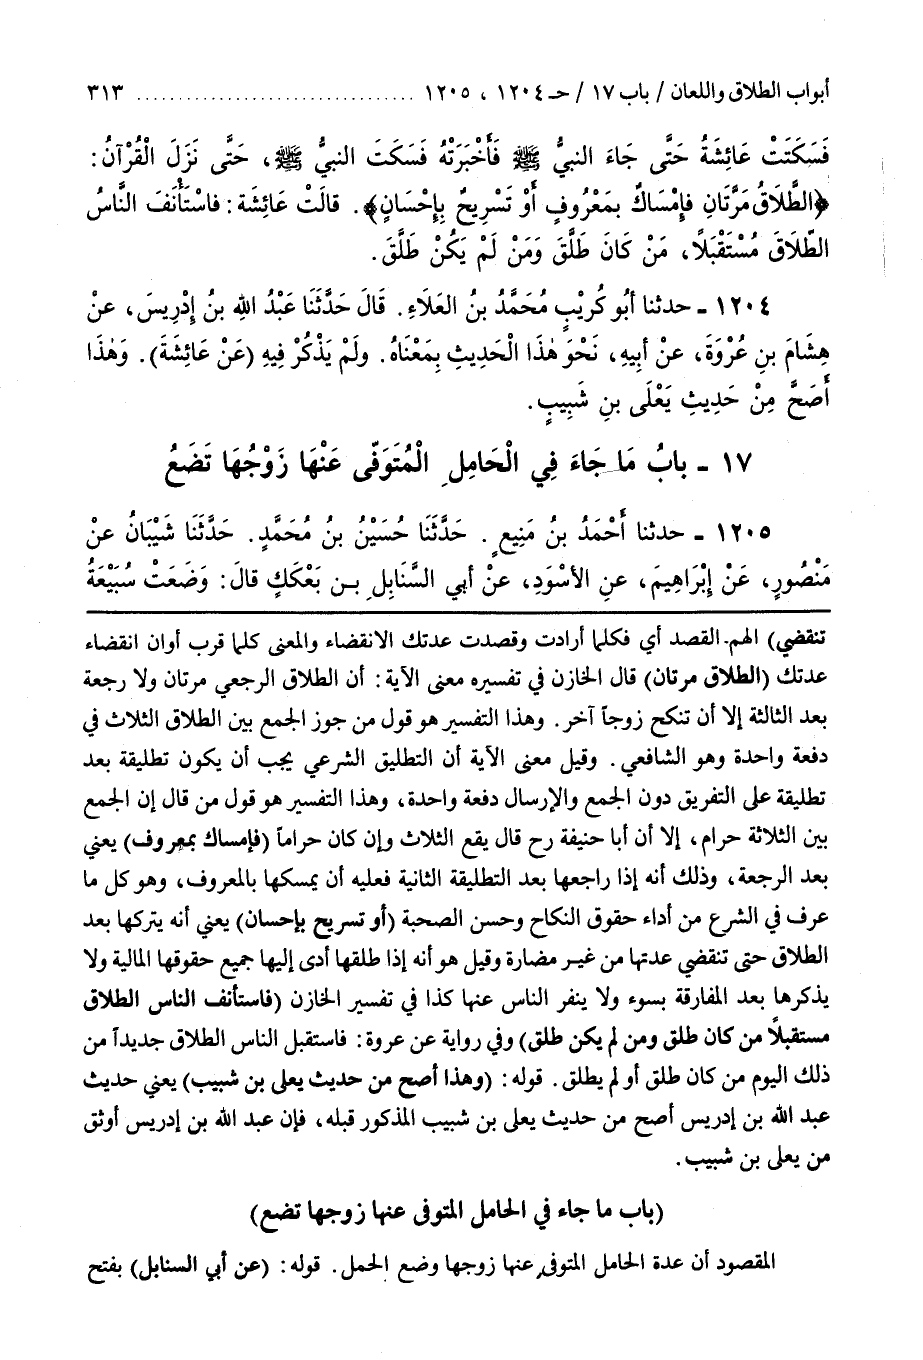 أبواب الطلاق واللعان / باب ١٧ / حـ ١٢٠٤ ، ١٢٠٥ ................................. ٣١٣
فَسَكَتَتْ عَائِشَةُ حَتَّى جَاءَ النبيُّ ﷺ فَأَخْبَرَتْهُ فَسَكَتَ النبيُّ ﷺ، حَتَّى نَزَلَ الْقُرْآنُ:
﴿الطَّلَاقُ مَرَّتَانِ فإمْسَاكٌ بِمَعْرُوفٍ أوْ تَسْرِيحٌ بِإِحْسَانٍ﴾. قالَتْ عَائِشَة: فاسْتَأْنَفَ النَّاسُ
الطَّلَاقَ مُسْتَقْبَلًا، مَنْ كَانَ طَلَّقَ وَمَنْ لَمْ يَكُنْ طَلَّقَ.
١٢٠٤ ـ حدثنا أبُو كُرَيْبٍ مُحَمَّدُ بنُ العَلَاءِ. قَالَ حَدَّثَنَا عَبْدُ اللهِ بنُ إدْرِيسَ، عنْ
هِشَامَ بنِ عُرْوَةَ، عنْ أبيِهِ، نَحْوَ هٰذَا الْحَدِيثِ بِمَعْنَاهُ. ولَمْ يَذْكُرْ فِيهِ (عَنْ عَائِشَةَ). وَهٰذَا
أَصَحُّ مِنْ حَدِيثِ يَعْلَى بنِ شَبِيبٍ.
١٧ ـ بابُ مَا جَاءَ فِي الْحَامِلِ الْمُتَوَفَّى عَنْهَا زَوْجُهَا تَضَعُ
١٢٠٥ ـ حدثنا أَحْمَدُ بنُ مَنِيعٍ. حَدَّثَنَا حُسَيْنُ بنُ مُحَمَّدٍ. حَدَّثَنَا شَيْبَانُ عنْ
مَنْصُورٍ، عَنْ إِبْرَاهِيمَ، عنِ الأسْوَدِ، عنْ أبي السَّنَابِلِ بـن بَعْكَكٍ قالَ: وَضَعَتْ سُبَيْعَةُ
تنقضي) الهم. القصد أي فكلما أرادت وقصدت عدتك الانقضاء والمعنى كلما قرب أوان انقضاء
عدتك (الطلاق مرتان) قال الخازن في تفسيره معنى الآية: أن الطلاق الرجعي مرتان ولا رجعة
بعد الثالثة إلا أن تنكح زوجاً آخر. وهذا التفسير هو قول من جوز الجمع بين الطلاق الثلاث في
دفعة واحدة وهو الشافعي. وقيل معنى الآية أن التطليق الشرعي يجب أن يكون تطليقة بعد
تطليقة على التفريق دون الجمع والإرسال دفعة واحدة، وهذا التفسير هو قول من قال إن الجمع
بين الثلاثة حرام، إلا أن أبا حنيفة رح قال يقع الثلاث وإن كان حراماً (فإمساك بمعروف) يعني
بعد الرجعة، وذلك أنه إذا راجعها بعد التطليقة الثانية فعليه أن يمسكها بالمعروف، وهو كل ما
عرف في الشرع من أداء حقوق النكاح وحسن الصحبة (أو تسريح بإحسان) يعني أنه يتركها بعد
الطلاق حتى تنقضي عدتها من غيـر مضارة وقيل هو أنه إذا طلقها أدى إليها جميع حقوقها المالية ولا
يذكرها بعد المفارقة بسوء ولا ينفر الناس عنها كذا في تفسير الخازن (فاستأنف الناس الطلاق
مستقبلًا من كان طلق ومن لم يكن طلق) وفي رواية عن عروة: فاستقبل الناس الطلاق جديداً من
ذلك اليوم من كان طلق أو لم يطلق. قوله: (وهذا أصح من حديث يعلى بن شبيب) يعني حديث
عبد الله بن إدريس أصح من حديث يعلى بن شبيب المذكور قبله، فإن عبد الله بن إدريس أوثق
من يعلى بن شبيب.
(باب ما جاء في الحامل المتوفى عنها زوجها تضع)
المقصود أن عدة الحامل المتوفى عنها زوجها وضع الحمل. قوله: (عن أبي السنابل) بفتح